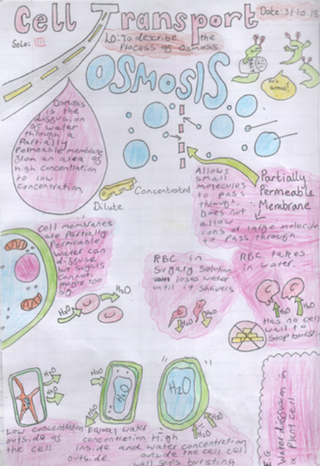 Cell Transport
Date: 3/10/18
Solo:
LO: To describe the
Process of Osmosis
OSMOSIS
Osmosis
is the
diffusion
of water
through a
Partially
Permeable membrane
from an area of
high concentration
to low
concentration
Dilute
Concentrated
Allows
small
molecules
to pass
through.
Does not
allow
ions or large molecules
to pass through
Partially
Permeable
Membrane
Cell membranes
are Partially
Permeable
Water can
diffuse
but sugars
cannot
H2O
H2O
RBC in
Sugary solution
loses water
until it shrivels
RBC takes
in water.
H2O
H2O
Has no cell
wall to
stop bursting
H2O
H2O
H2O
H2O
H2O
H2O
Low concentration
outside of
the cell
Equal water
concentration
inside and
outside
High
water concentration
outside the cell
cell wall stops bursting
E.G.
Water diffusion in
a Plant cell